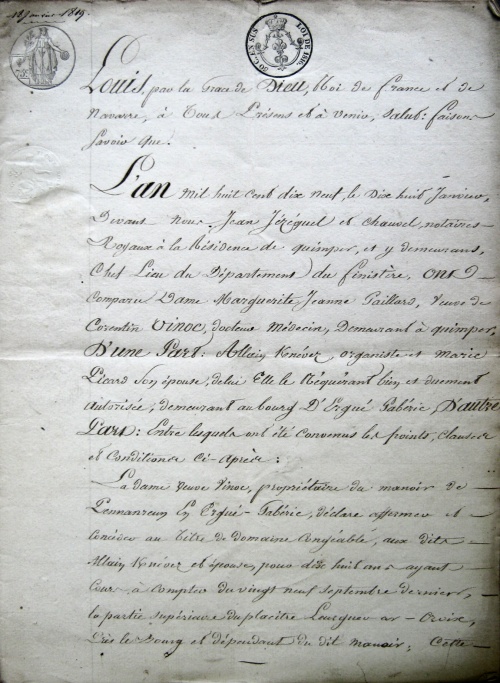 18 Janvier 1819.
50 C. EN SUS
LOI DE 1816
Louis, par la Grace de Dieu, Roi de france et de
Navarre, à Tous Présens et à venir, Salut: faisons
Savoir que.
L'an mil huit cent dix neuf, le Dix huit Janvier,
Devant Nous Jean Jézéquel et chauvel, notaires
Royaux à la Résidence de quimper, et y demeurans,
Chef Lieu du Département du finistère, ont
Comparu Dame Marguerite Jeanne Paillard, Veuve de
Corentin Vinoc, docteur Médecin, Demeurant à quimper,
D'une Part: Allain Knévez, organiste et marie
Picard Son épouse, de lui Elle le Réquérant bien et duement
autorisée, demeurant au bourg D'Ergué Gabéric, D'autre
Part: Entre lesquels ont été Convenus les points, clauses
et Conditions Ci-Après:
La dame veuve Vinoc, propriétaire du manoir de
Pennanreun En Ergué-Gabéric, déclare affermer et
Concéder au Titre de domaine Congéable, aux dits
Allain Knévez et épouse, pour dix huit ans ayant
Cours à Compter du vingt neuf septembre dernier,
la partie supérieure du placître Leurguer ar-Croix,
Près le Bourg et dépendant du dit manoir; Cette